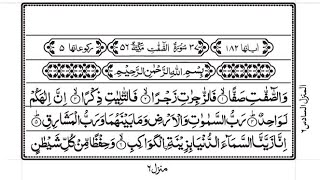 اٰیاتها ١٨٢ ٣ سُوْرَةُ الصّٰٓفّٰتِ مَكِّيَّةٌ ٥٢ رکوعاتها ٥
بِسْمِ اللهِ الرَّحْمٰنِ الرَّحِيْمِ
وَالصّٰٓفّٰتِ صَفًّا ۙ فَالزّٰجِرٰتِ زَجْرًا ۙ فَالتّٰلِيٰتِ ذِكْرًا ۙ اِنَّ اِلٰهَكُمْ
لَوَاحِدٌ ؕ رَبُّ السَّمٰوٰتِ وَالْاَرْضِ وَمَا بَيْنَهُمَا وَرَبُّ الْمَشَارِقِ ؕ
اِنَّا زَيَّنَّا السَّمَآءَ الدُّنْيَا بِزِيْنَةِ ۣالْكَوَاكِبِ ۙ وَحِفْظًا مِّنْ كُلِّ شَيْطٰنٍ
منزل ٦
المنزل السادس ٦